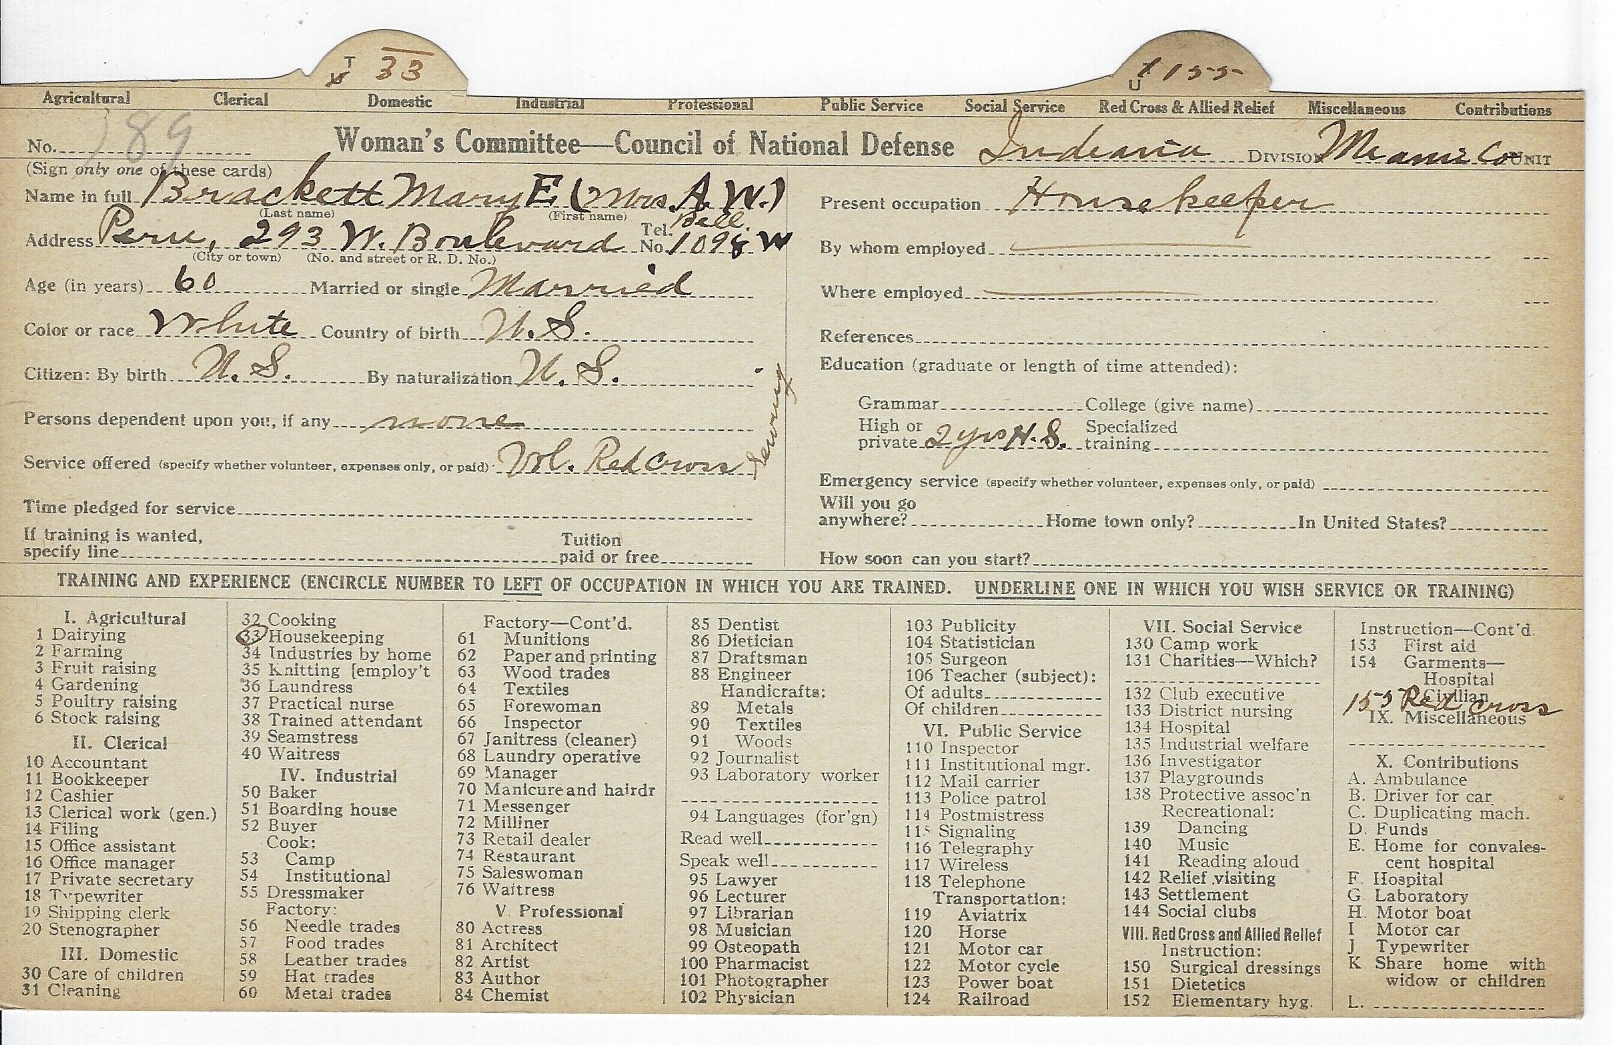 T 33
U 155
Agricultural Clerical Domestic Industrial Professional Public Service Social Service Red Cross & Allied Relief Miscellaneous Contributions
No. 189 Woman's Committee—Council of National Defense Indiana DIVISION Miami Co UNIT
(Sign only one of these cards)
Name in full Brackett Mary E (Mrs. A. W.)
(Last name) (First name)
Address Peru, 293 W. Boulevard Tel. No. Bell 1098 W
(City or town) (No. and street or R. D. No.)
Age (in years) 60 Married or single Married
Color or race White Country of birth U. S.
Citizen: By birth U. S. By naturalization U. S.
Persons dependent upon you, if any none
Service offered (specify whether volunteer, expenses only, or paid) Vol. Red Cross Sewing
Time pledged for service
If training is wanted,
specify line Tuition paid or free
Present occupation Housekeeper
By whom employed
Where employed
References
Education (graduate or length of time attended):
Grammar College (give name)
High or private 2 yrs H. S. Specialized training
Emergency service (specify whether volunteer, expenses only, or paid)
Will you go
anywhere? Home town only? In United States?
How soon can you start?
TRAINING AND EXPERIENCE (ENCIRCLE NUMBER TO LEFT OF OCCUPATION IN WHICH YOU ARE TRAINED. UNDERLINE ONE IN WHICH YOU WISH SERVICE OR TRAINING)
I. Agricultural
1 Dairying
2 Farming
3 Fruit raising
4 Gardening
5 Poultry raising
6 Stock raising
II. Clerical
10 Accountant
11 Bookkeeper
12 Cashier
13 Clerical work (gen.)
14 Filing
15 Office assistant
16 Office manager
17 Private secretary
18 Typewriter
19 Shipping clerk
20 Stenographer
III. Domestic
30 Care of children
31 Cleaning
32 Cooking
33 Housekeeping
34 Industries by home
35 Knitting [employ't
36 Laundress
37 Practical nurse
38 Trained attendant
39 Seamstress
40 Waitress
IV. Industrial
50 Baker
51 Boarding house
52 Buyer
Cook:
53 Camp
54 Institutional
55 Dressmaker
Factory:
56 Needle trades
57 Food trades
58 Leather trades
59 Hat trades
60 Metal trades
Factory—Cont'd.
61 Munitions
62 Paper and printing
63 Wood trades
64 Textiles
65 Forewoman
66 Inspector
67 Janitress (cleaner)
68 Laundry operative
69 Manager
70 Manicure and hairdr
71 Messenger
72 Milliner
73 Retail dealer
74 Restaurant
75 Saleswoman
76 Waitress
V. Professional
80 Actress
81 Architect
82 Artist
83 Author
84 Chemist
85 Dentist
86 Dietician
87 Draftsman
88 Engineer
Handicrafts:
89 Metals
90 Textiles
91 Woods
92 Journalist
93 Laboratory worker
94 Languages (for'gn)
Read well
Speak well
95 Lawyer
96 Lecturer
97 Librarian
98 Musician
99 Osteopath
100 Pharmacist
101 Photographer
102 Physician
103 Publicity
104 Statistician
105 Surgeon
106 Teacher (subject):
Of adults
Of children
VI. Public Service
110 Inspector
111 Institutional mgr.
112 Mail carrier
113 Police patrol
114 Postmistress
115 Signaling
116 Telegraphy
117 Wireless
118 Telephone
Transportation:
119 Aviatrix
120 Horse
121 Motor car
122 Motor cycle
123 Power boat
124 Railroad
VII. Social Service
130 Camp work
131 Charities—Which?
132 Club executive
133 District nursing
134 Hospital
135 Industrial welfare
136 Investigator
137 Playgrounds
138 Protective assoc'n
Recreational:
139 Dancing
140 Music
141 Reading aloud
142 Relief visiting
143 Settlement
144 Social clubs
VIII. Red Cross and Allied Relief
Instruction:
150 Surgical dressings
151 Dietetics
152 Elementary hyg.
Instruction—Cont'd.
153 First aid
154 Garments—
Hospital
Civilian
155 Red Cross
IX. Miscellaneous
X. Contributions
A. Ambulance
B. Driver for car
C. Duplicating mach.
D. Funds
E. Home for convales-
cent hospital
F. Hospital
G Laboratory
H. Motor boat
I Motor car
J Typewriter
K Share home with
widow or children
L.